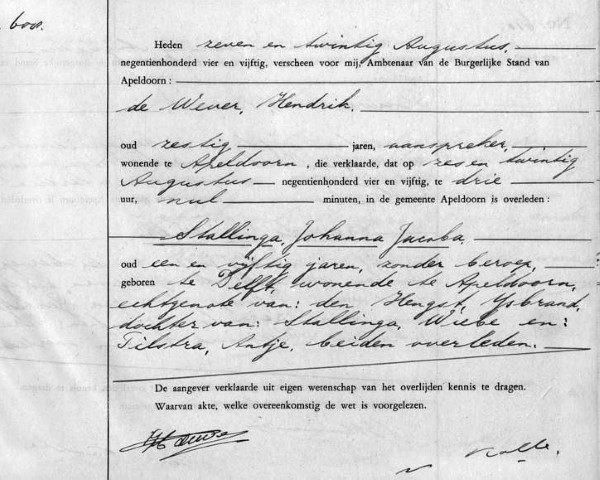 600.
Heden zeven en twintig Augustus,
negentienhonderd vier en vijftig, verscheen voor mij, Ambtenaar van de Burgerlijke Stand van
Apeldoorn:
de Wever, Hendrik.
oud zestig jaren, aanspreker,
wonende te Apeldoorn, die verklaarde, dat op zes en twintig
Augustus negentienhonderd vier en vijftig, te drie
uur, nul minuten, in de gemeente Apeldoorn is overleden:
Stallinga, Johanna Jacoba.
oud een en vijftig jaren, zonder beroep,
geboren te Delft, wonende te Apeldoorn,
echtgenote van: den Hengst, IJsbrand,
dochter van: Stallinga, Wiebe en:
Tilstra, Antje, beiden overleden.
De aangever verklaarde uit eigen wetenschap van het overlijden kennis te dragen.
Waarvan akte, welke overeenkomstig de wet is voorgelezen.